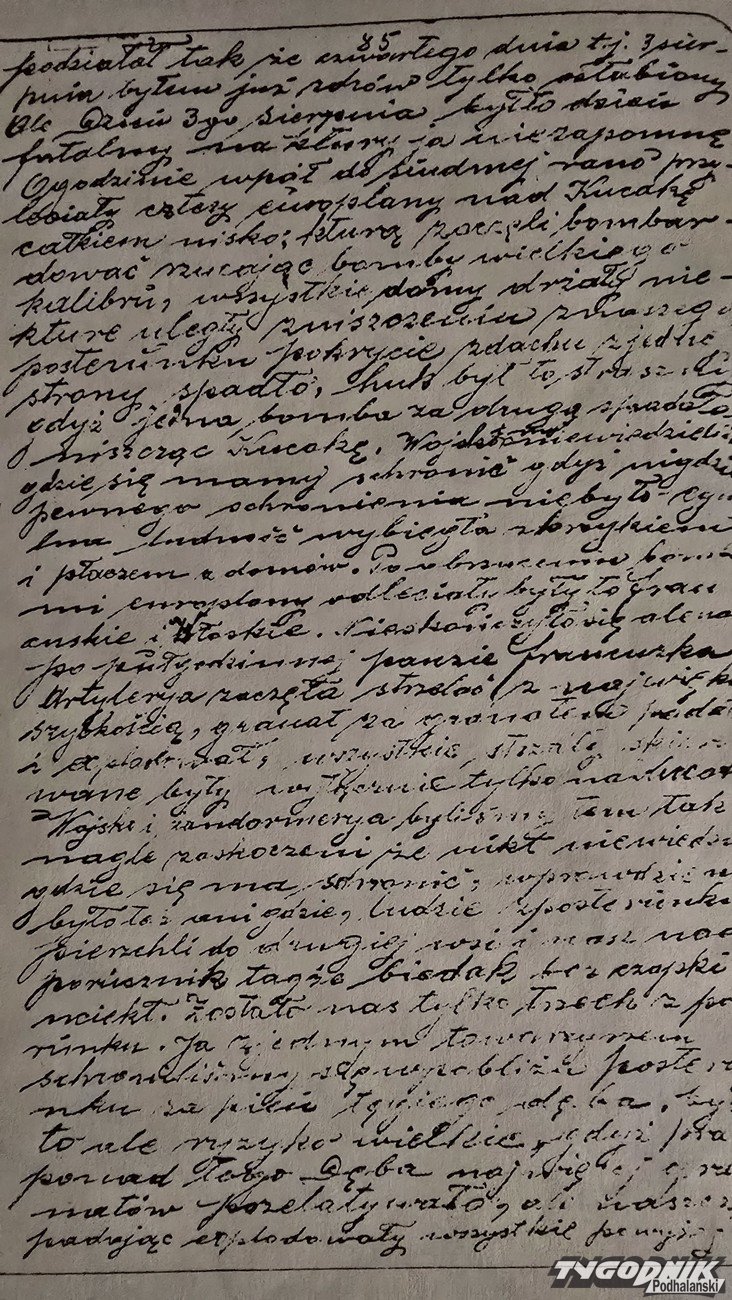 85
podziałał tak że czwartego dnia t.j. 3 sier-
pnia byłem już zdrów tylko osłabiony
Ale Dzień 3go Sierpnia był to dzień
fatalny na który ja niezapomnę
O godzinie wpół do siudmej rano przy-
leciały cztery europlany nad Kucakę
całkiem nisko, kturą zaczęli bombar-
dować rzucając bomby wielkiego
kalibru, wszystkie domy drżały nie-
kture uległy zniszczeniu znaszego
posterunku pokrycie zdachu zjedne
strony spadło, huk był to straszli
gdyż jedna bomba za drugą spadała
niszcząc Kucakę. Wojsko niewiedzieli
gdzie się mamy schronić gdyż nigdzi
pewnego schronienia niebyło cyw
lna ludność wybiegła zkrzykiem
i płaczem z domów. Po wyrzuceniu bom
mi europlany odleciały były to fran
cuskie i Włoskie. Nieskończyło się ale na
po pułgodzinnej pauzie francuzka
Artylerja zaczęła strzelać z najwięk
szybkością, granat za granatem padał
i explodował, wszystkie strzały skiero
wane były wyłącznie tylko na Kucak
Wojsko i żandarmerja byliśmy tem tak
nagle zaskoczeni że nikt niewiedzi
gdzie się ma schronić, wprawdzie n
było też nigdzie, ludzie zposterunku
pierzchli do drugiej wsi i nasz nad
porucznik tagże biedak bez czapki
uciekł. Zostało nas tylko trzech z po
runku. Ja z jednym towarzyszem
schroniliśmy się wpobliżu postero
nku za pień tęgiego dęba, by
to ale ryzyko wielkie, gdyż pra
ponad tego Dęba najwięcej gra
natów przelatywało, ale naszcz
padając explodowały wszystkie powyżej
TYGODNIK
Podhalański